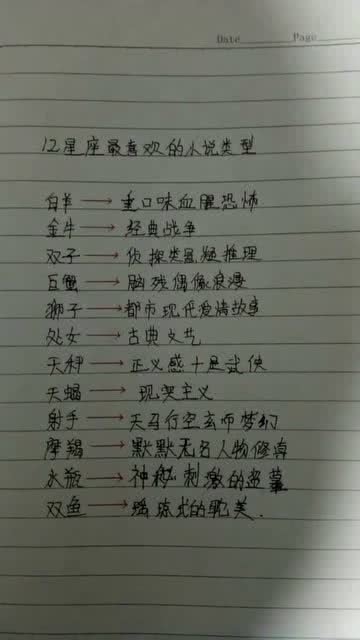 Date Page
12星座最喜欢的小说类型
白羊→重口味血腥恐怖
金牛→经典战争
双子→侦探类悬疑推理
巨蟹→脑残偶像浪漫
狮子→都市现代爱情故事
处女→古典文艺
天秤→正义感十足武侠
天蝎→现实主义
射手→天马行空玄幻梦幻
摩羯→默默无名人物修真
水瓶→神秘刺激的盗墓
双鱼→琼瑶式的唯美.